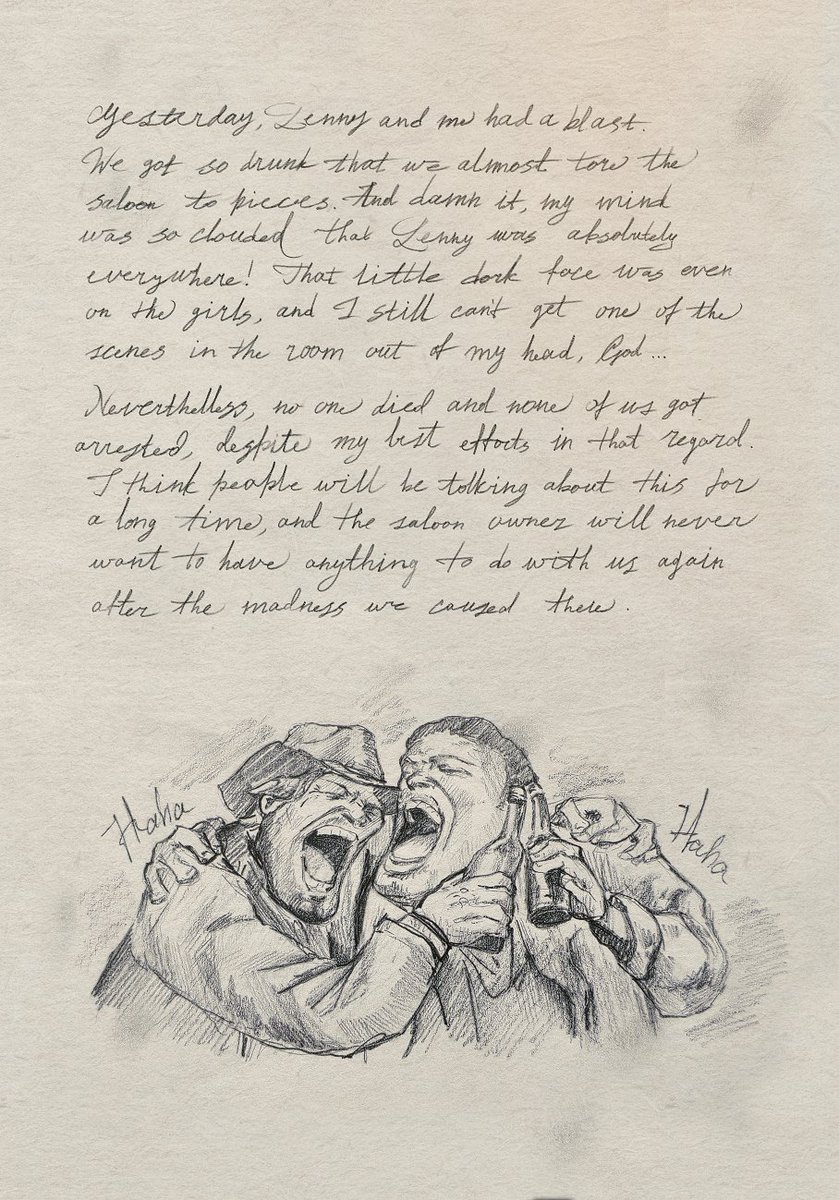 Yesterday, Lenny and me had a blast.
We got so drunk that we almost tore the
saloon to pieces. And damn it, my mind
was so clouded that Lenny was absolutely
everywhere! That little dork face was even
on the girls, and I still can't get one of the
scenes in the room out of my head, God...
Neverthelless, no one died and none of us got
arrested, despite my best efforts in that regard.
I think people will be talking about this for
a long time, and the saloon owner will never
want to have anything to do with us again
after the madness we caused there.
Haha
Haha